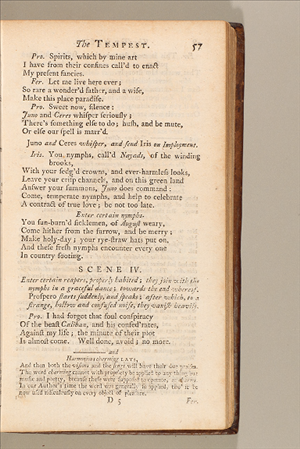 The TEMPEST. 57
Pro. Spirits, which by mine art
I have from their confines call'd to enact
My present fancies.
Fer. Let me live here ever;
So rare a wonder'd father, and a wife,
Make this place paradise.
Pro. Sweet now, silence:
Juno and Ceres whisper seriously;
There's something else to do; hush, and be mute,
Or else our spell is marr'd.
Juno and Ceres whisper, and send Iris on Imployment.
Iris. You nymphs, call'd Nayads, of the winding
brooks,
With your sedg'd crowns, and ever-harmless looks,
Leave your crisp channels, and on this green land
Answer your summons, Juno does command:
Come, temperate nymphs, and help to celebrate
A contract of true love; be not too late.
Enter certain nymphs.
You sun-burn'd sicklemen, of August weary,
Come hither from the furrow, and be merry;
Make holy-day; your rye-straw hats put on,
And these fresh nymphs encounter every one
In country footing.
SCENE IV.
Enter certain reapers, properly habited; they join with the
nymphs in a graceful dance; towards the end whereof,
Prospero starts suddenly, and speaks; after which, to a
strange, hollow and confused noise, they vanish heavily.
Pro. I had forgot that foul conspiracy
Of the beast Caliban, and his confed'rates,
Against my life; the minute of their plot
Is almost come. Well done, avoid; no more.
and
Harmonious charming LAYS,
And then both the visions and the songs will have their due
This word charming cannot with propriety be applied to any thing but
music and poetry, because these were supposed to
In our Author's time the word was generally so applied, tho' it be
now used ridiculously on every object of pleasure.
D 5